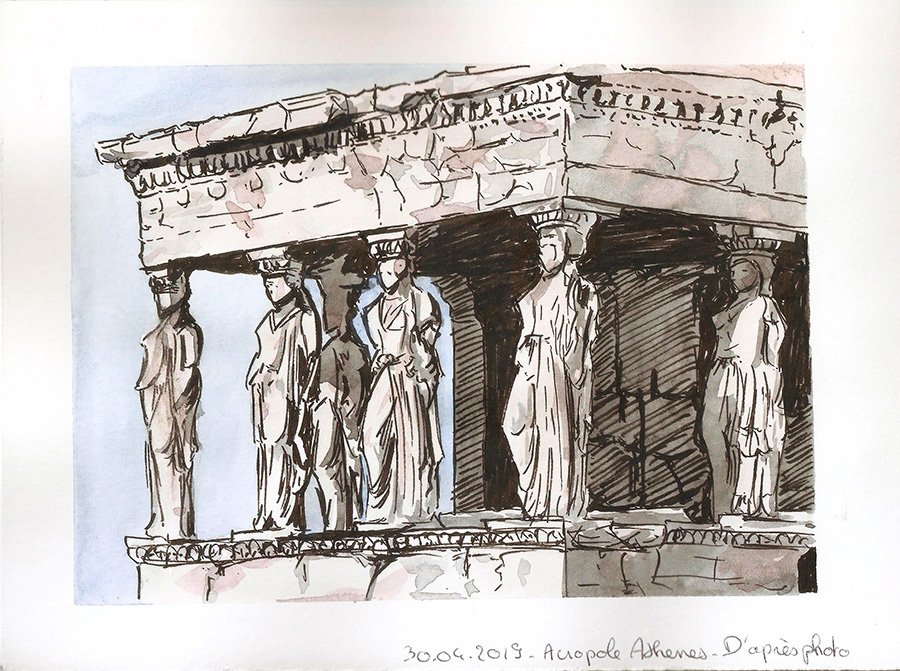 30.04.2019 - Acropole Athenes - D'après photo